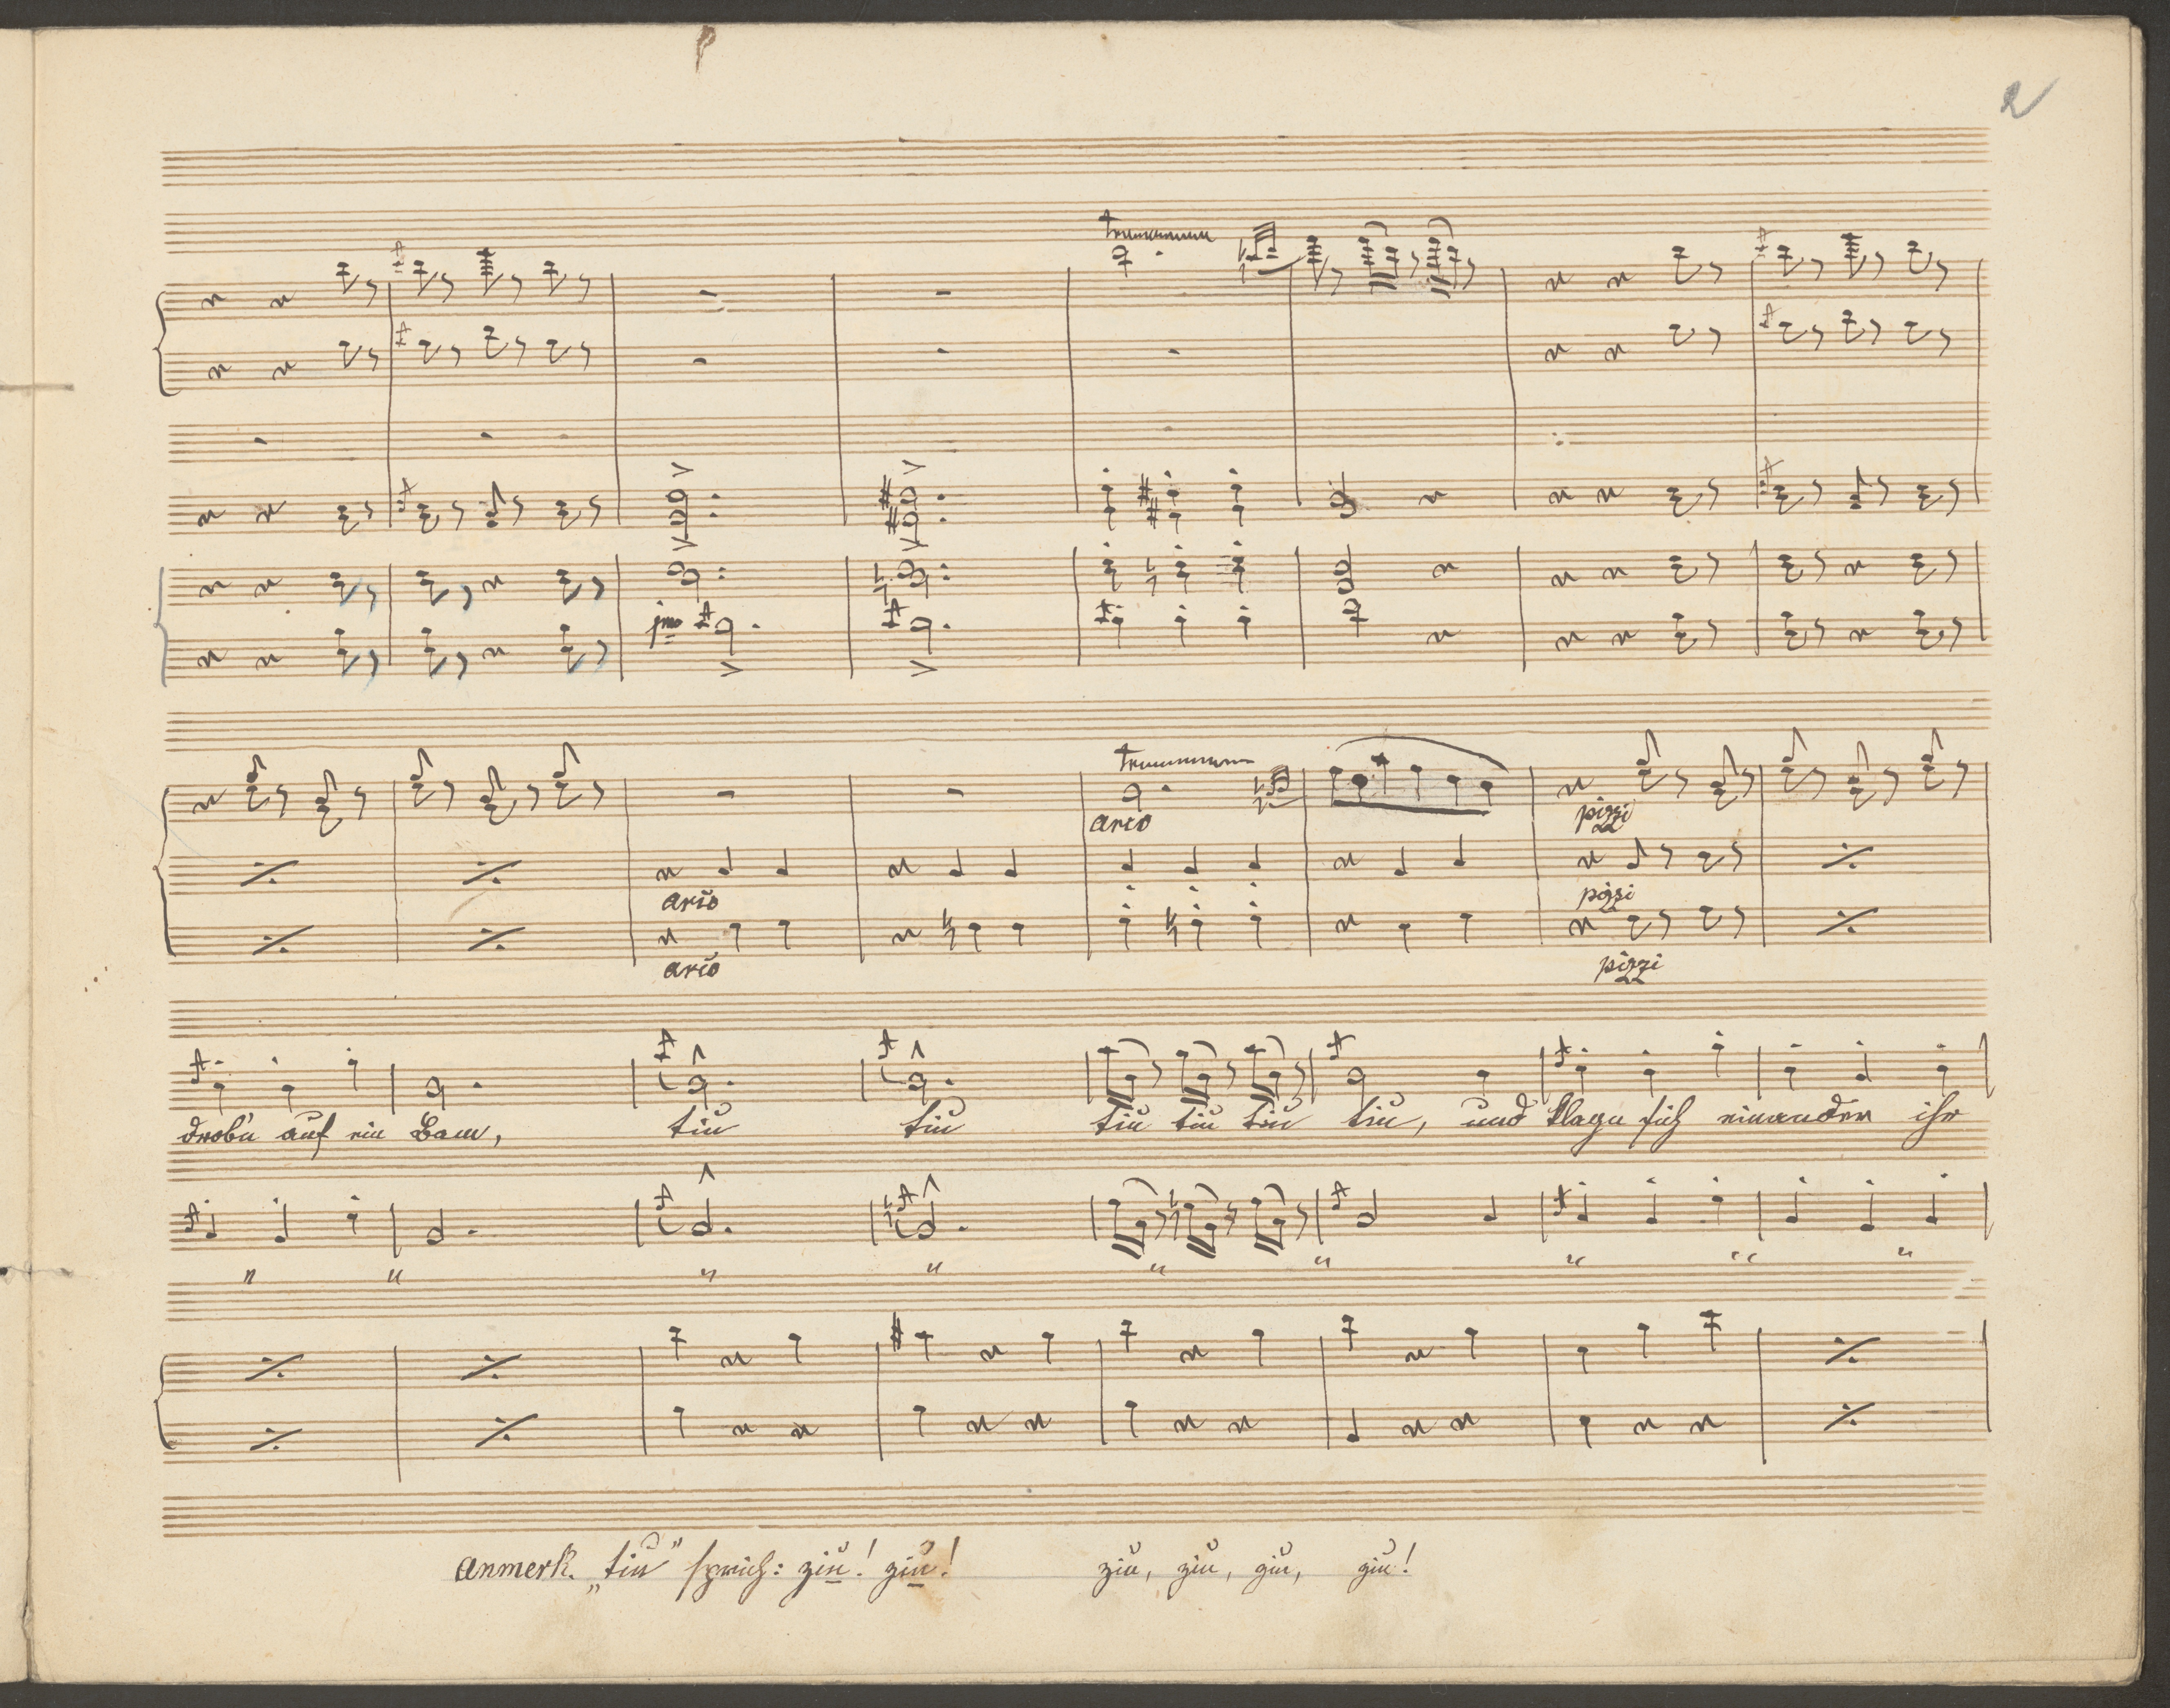 2
tr
tr
arco
pizzi
arco
pizzi
arco
pizzi
drob'n auf ein Bam, tiu tiu tiu tiu tiu tiu, und klagn sich einander ihr
" " " " " " " " "
Anmerk. „tiu" sprich: ziu! ziu! ziu, ziu, ziu, ziu!